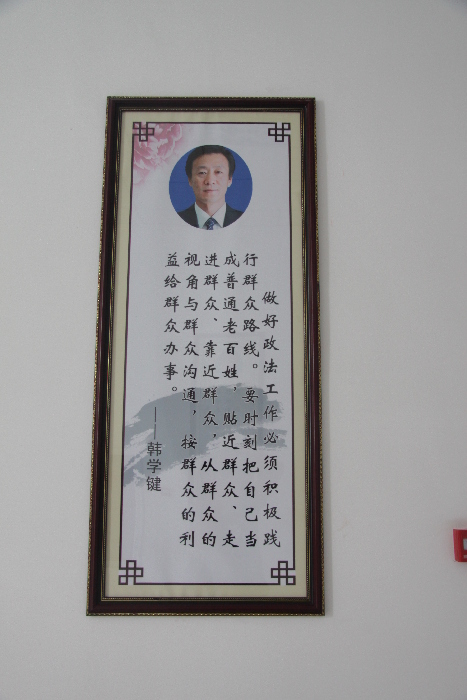 做好政法工作必须积极践
行群众路线。要时刻把自己当
成普通老百姓，贴近群众、走
进群众、靠近群众，从群众的
视角与群众沟通，按群众的利
益给群众办事。
——韩学键